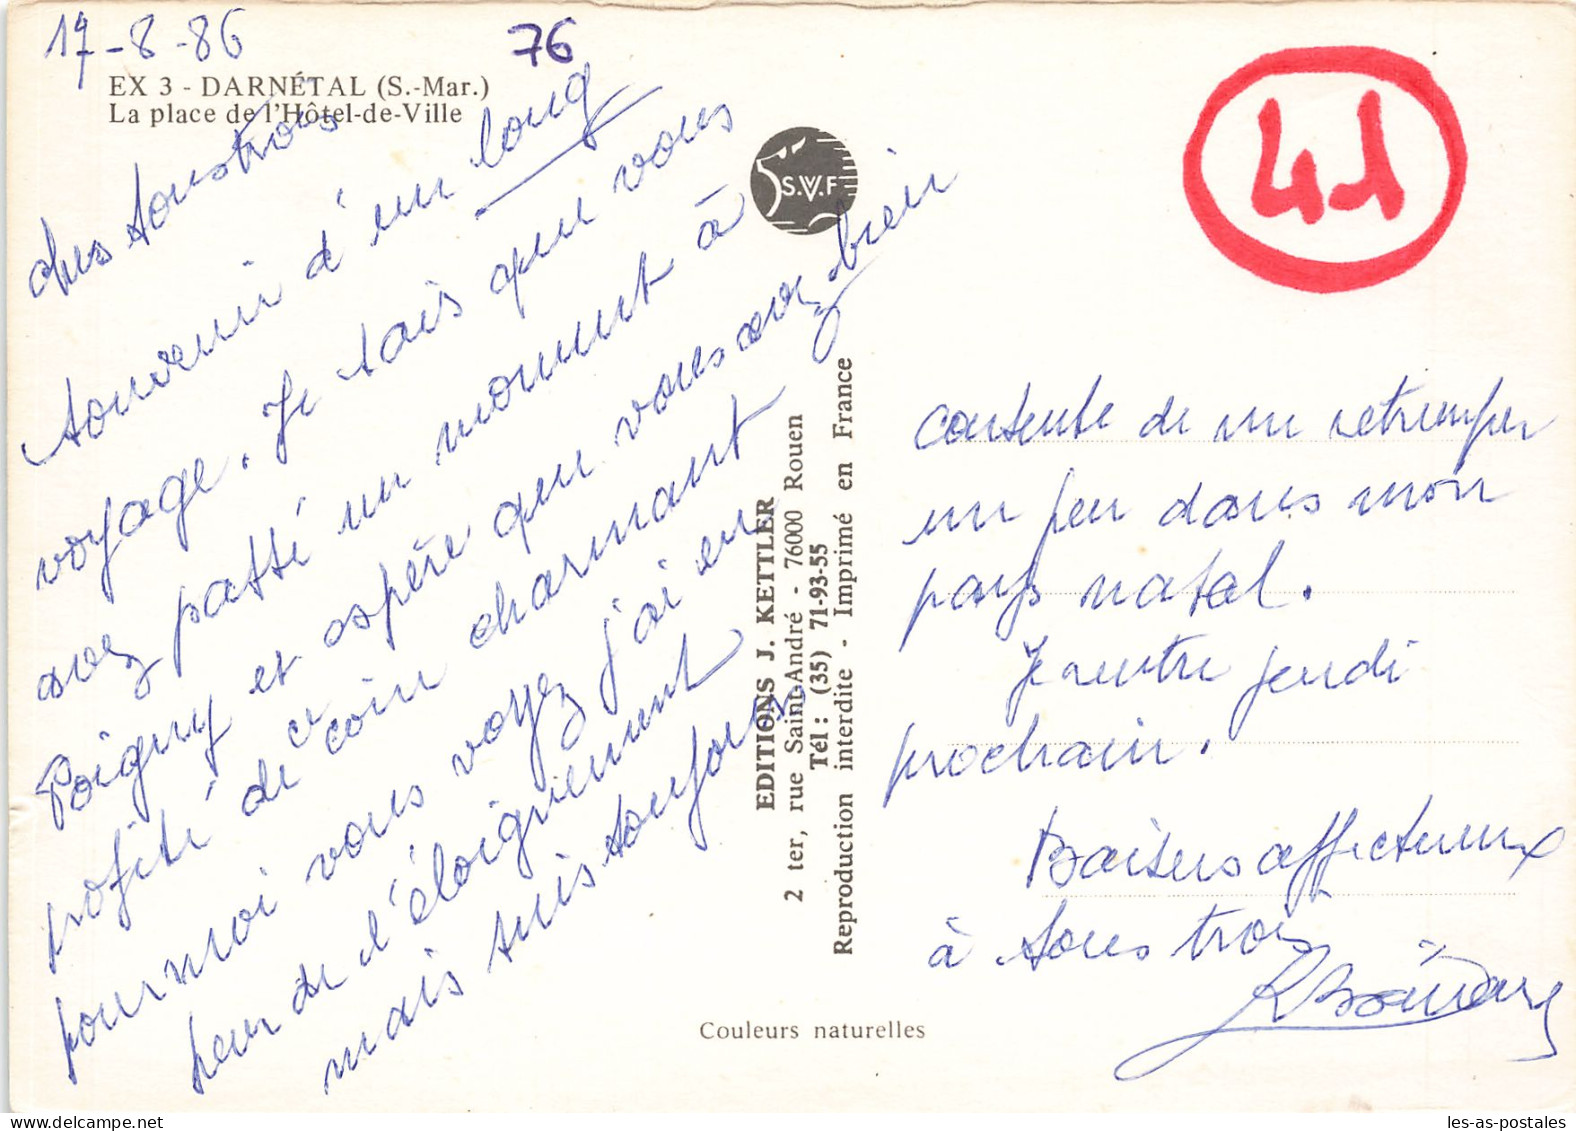 17-8-86
76
EX 3 - DARNÉTAL (S.-Mar.)
La place de l'Hôtel-de-Ville
41
chers tous trois
Souvenir d'un long
voyage. Je sais que vous
avez passé un moment à
Poigny et espère que vous avez bien
profité de ce coin charmant
pour moi vous voyez j'ai eu
peur de l'éloignement
mais suis toujours
contente de me retremper
un peu dans mon
pays natal.
Je rentre jeudi
prochain.
Baisers affectueux
à tous trois
S.V.F
EDITIONS J. KETTLER
2 ter, rue Saint-André - 76000 Rouen
Tél : (35) 71-93-55
Reproduction interdite - Imprimé en France
Couleurs naturelles
les-as-postales